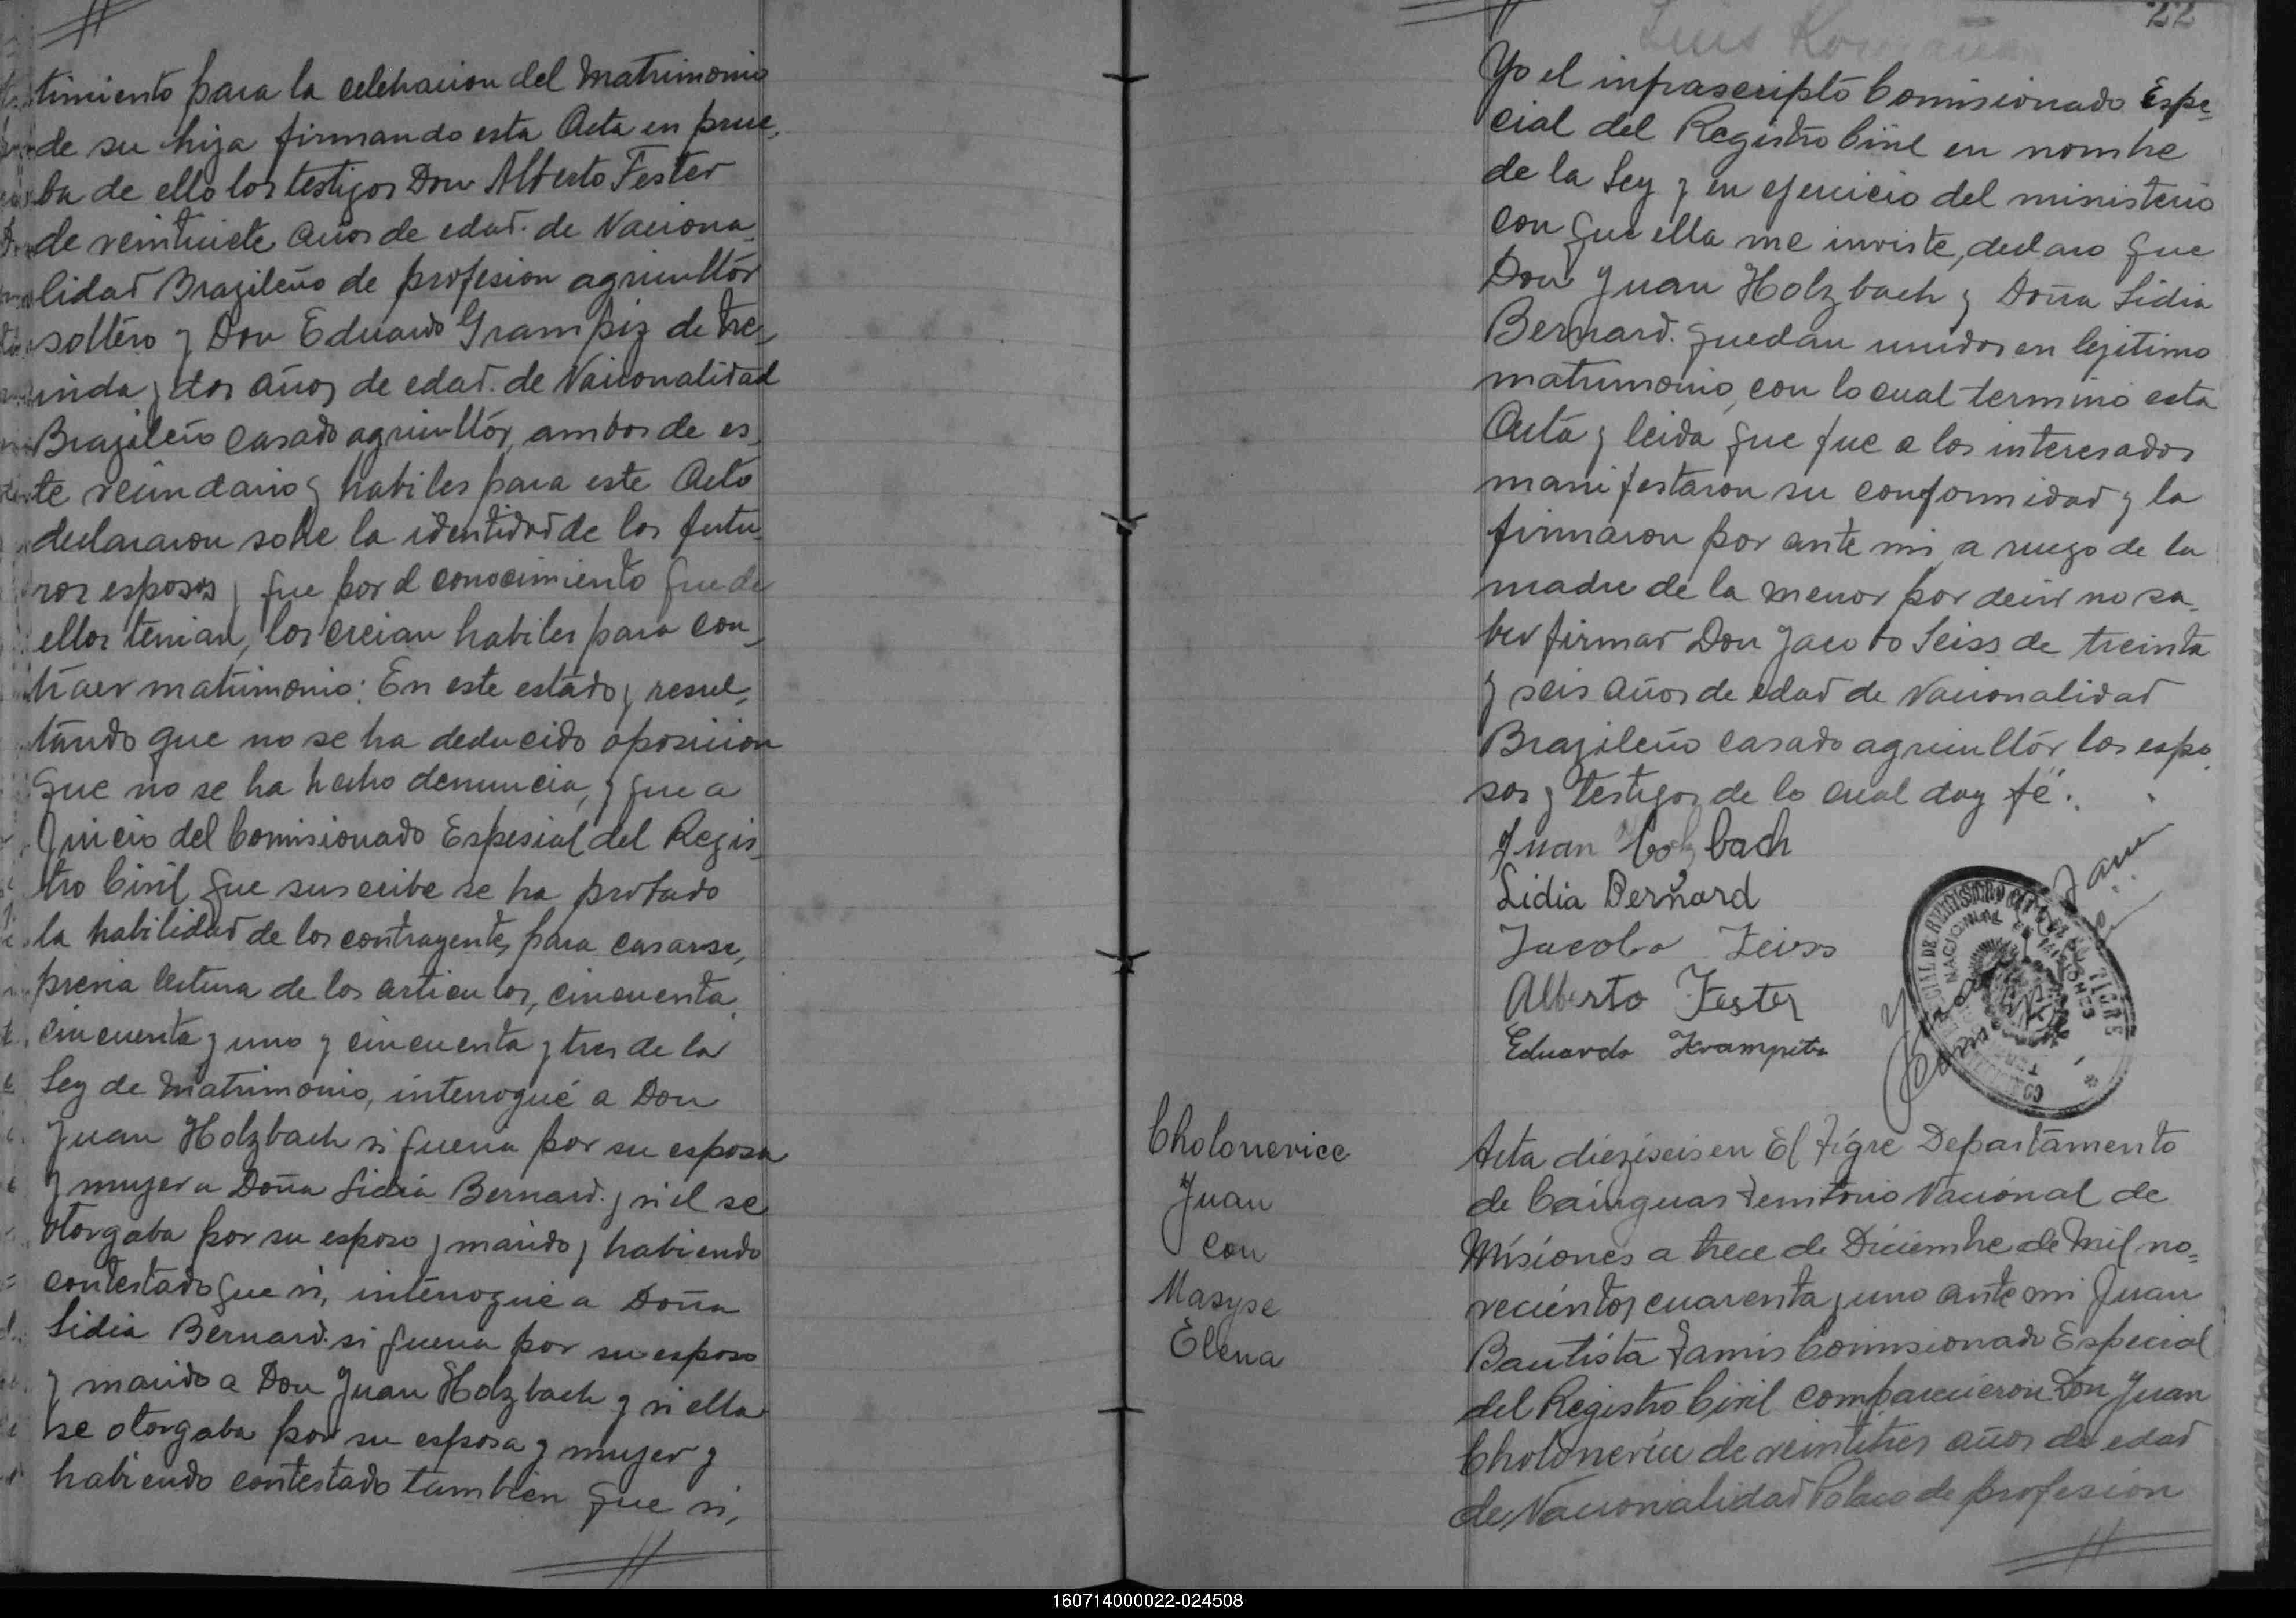 timiento para la celebracion del Matrimonio
de su hija firmando esta Acta en prue-
ba de ello los testigos Don Alberto Fester
de veintisiete años de edad. de Naciona-
lidad Brazileño de profesion agricultór
soltéro y Don Eduardo Grampiz de tre-
inda y dos años de edad. de Nacionalidad
Brazileño casado agricultór, ambos de es-
te vecindario y habiles para este Acto
declararon sobre la identidad de los futu-
ros esposos y que por el conocimiento que de
ellos tenian, los creian habiles para con-
traer matrimonio: En este estado y resul-
tando que no se ha deducido oposicion
que no se ha hecho denuncia, y que a
Juicio del Comisionado Espesial del Regis-
tro Civil que suscribe se ha probado
la habilidad de los contrayentes para casarse,
previa lectura de los articulos, cincuenta,
cincuenta y uno y cincuenta y tres de la
Ley de Matrimonio, interrogué a Don
Juan Holzbach si queria por su esposa
y mujer a Doña Lidia Bernard. y si el se
otorgaba por su esposo y marido y habiendo
contestado que si, interrogué a Doña
Lidia Bernard. si queria por su esposo
y marido a Don Juan Holzbach y si ella
se otorgaba por su esposa y mujer y
habiendo contestado tambien que si,
22
Luis
Yo el infrascripto Comisionado Espe-
cial del Registro Civil en nombre
de la Ley y en ejercicio del ministerio
con que ella me inviste, declaro que
Don Juan Holzbach y Doña Lidia
Bernard. quedan unidos en lejitimo
matrimonio, con lo cual termino esta
Acta y leida que fue a los interesados
manifestaron su conformidad y la
firmaron por ante mi, a ruego de la
madre de la menor por decir no sa-
ber firmar Don Jacobo Seiss de treinta
y seis años de edad de Nacionalidad
Brazileño casado agricultór los espo-
sos y testigos de lo cual doy fé.
Juan Holzbach
Lidia Bernard
Jacobo Zeiss
Alberto Fester
Eduardo Krampitz
Cholonevice
Juan
con
Masyse
Elena
Acta diezíseis en El Tigre Departamento
de Cainguas Territorio Nacional de
Misiones a trece de Diciembre de Mil no-
vecientos cuarenta y uno ante mi Juan
Bautista Famis Comisionado Especial
del Registro Civil comparecieron Don Juan
Cholonevice de veintitres años de edad
de Nacionalidad Polaco de profesion
160714000022-024508